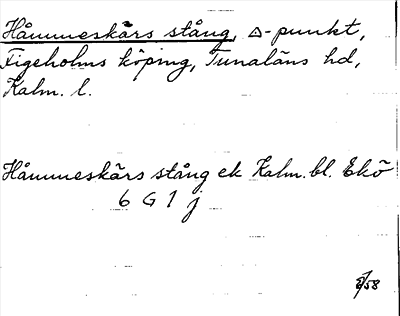 Håmmeskärs stång, △-punkt,
Figeholms köping, Tunaläns hd,
Kalm. l.
Håmmeskärs stång ek Kalm. bl. Ekö
6 G 1 j